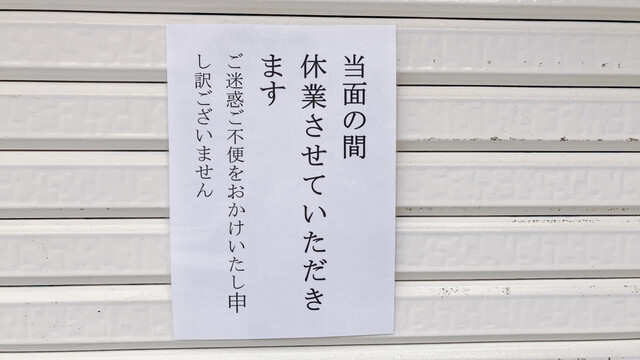 当面の間
休業させていただき
ます
ご迷惑ご不便をおかけいたし申
し訳ございません